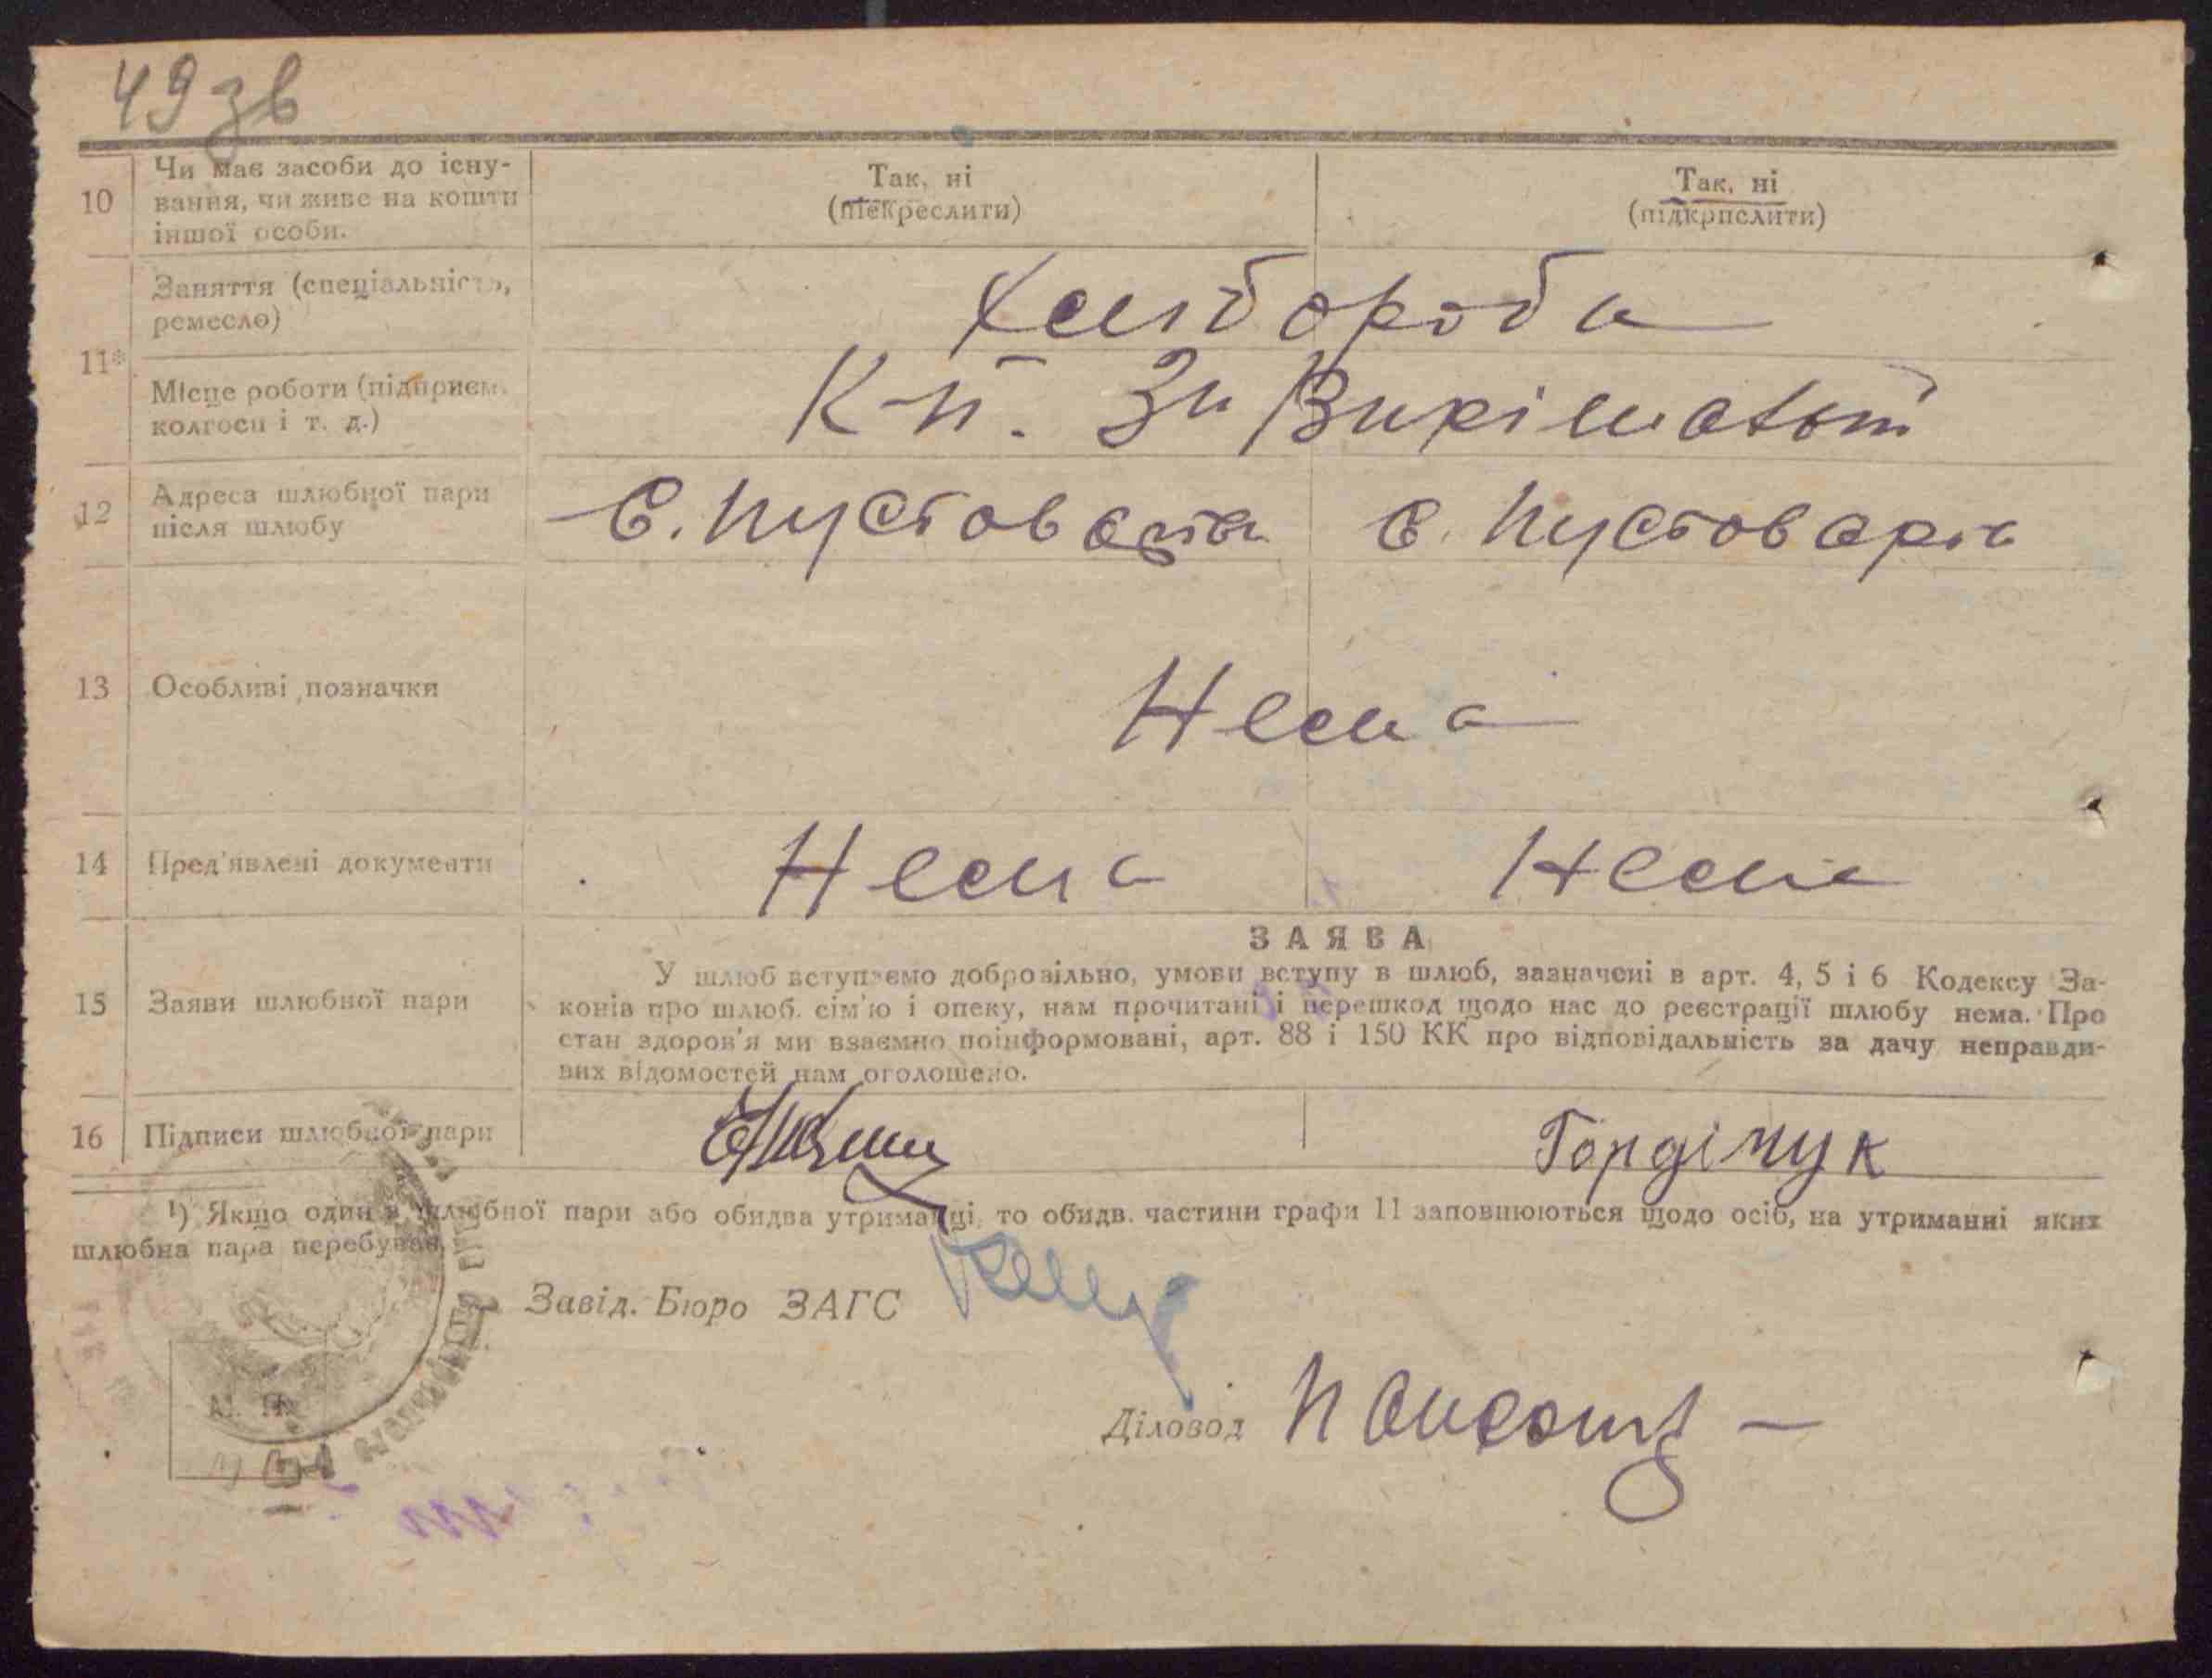 49 зв
10 Чи має засоби до існу-
вання, чи живе на кошти
іншої особи.
Так, ні
(підкреслити)
Так, ні
(підкрпслити)
11*
Заняття (спеціальність,
ремесло)
Хлібороби
Місце роботи (підприєм.
колгосп і т. д.)
К-п.
12 Адреса шлюбної пари
після шлюбу
с. Пустоварів с. Пустоварів
13 Особливі позначки
Нема
14 Пред'явлені документи
Нема Нема
15 Заяви шлюбної пари
ЗАЯВА
У шлюб вступаємо добровільно, умови вступу в шлюб, зазначені в арт. 4, 5 і 6 Кодексу За-
конів про шлюб. сім'ю і опеку, нам прочитані і перешкод щодо нас до реєстрації шлюбу нема. Про
стан здоров'я ми взаємно поінформовані, арт. 88 і 150 КК про відповідальність за дачу неправди-
вих відомостей нам оголошено.
16 Підписи шлюбної пари
Гордійчук
¹) Якщо один з шлюбної пари або обидва утриманці, то обидв. частини графи 11 заповнюються щодо осіб, на утриманні яких
шлюбна пара перебуває.
Завід. Бюро ЗАГС
Діловод
М. П.